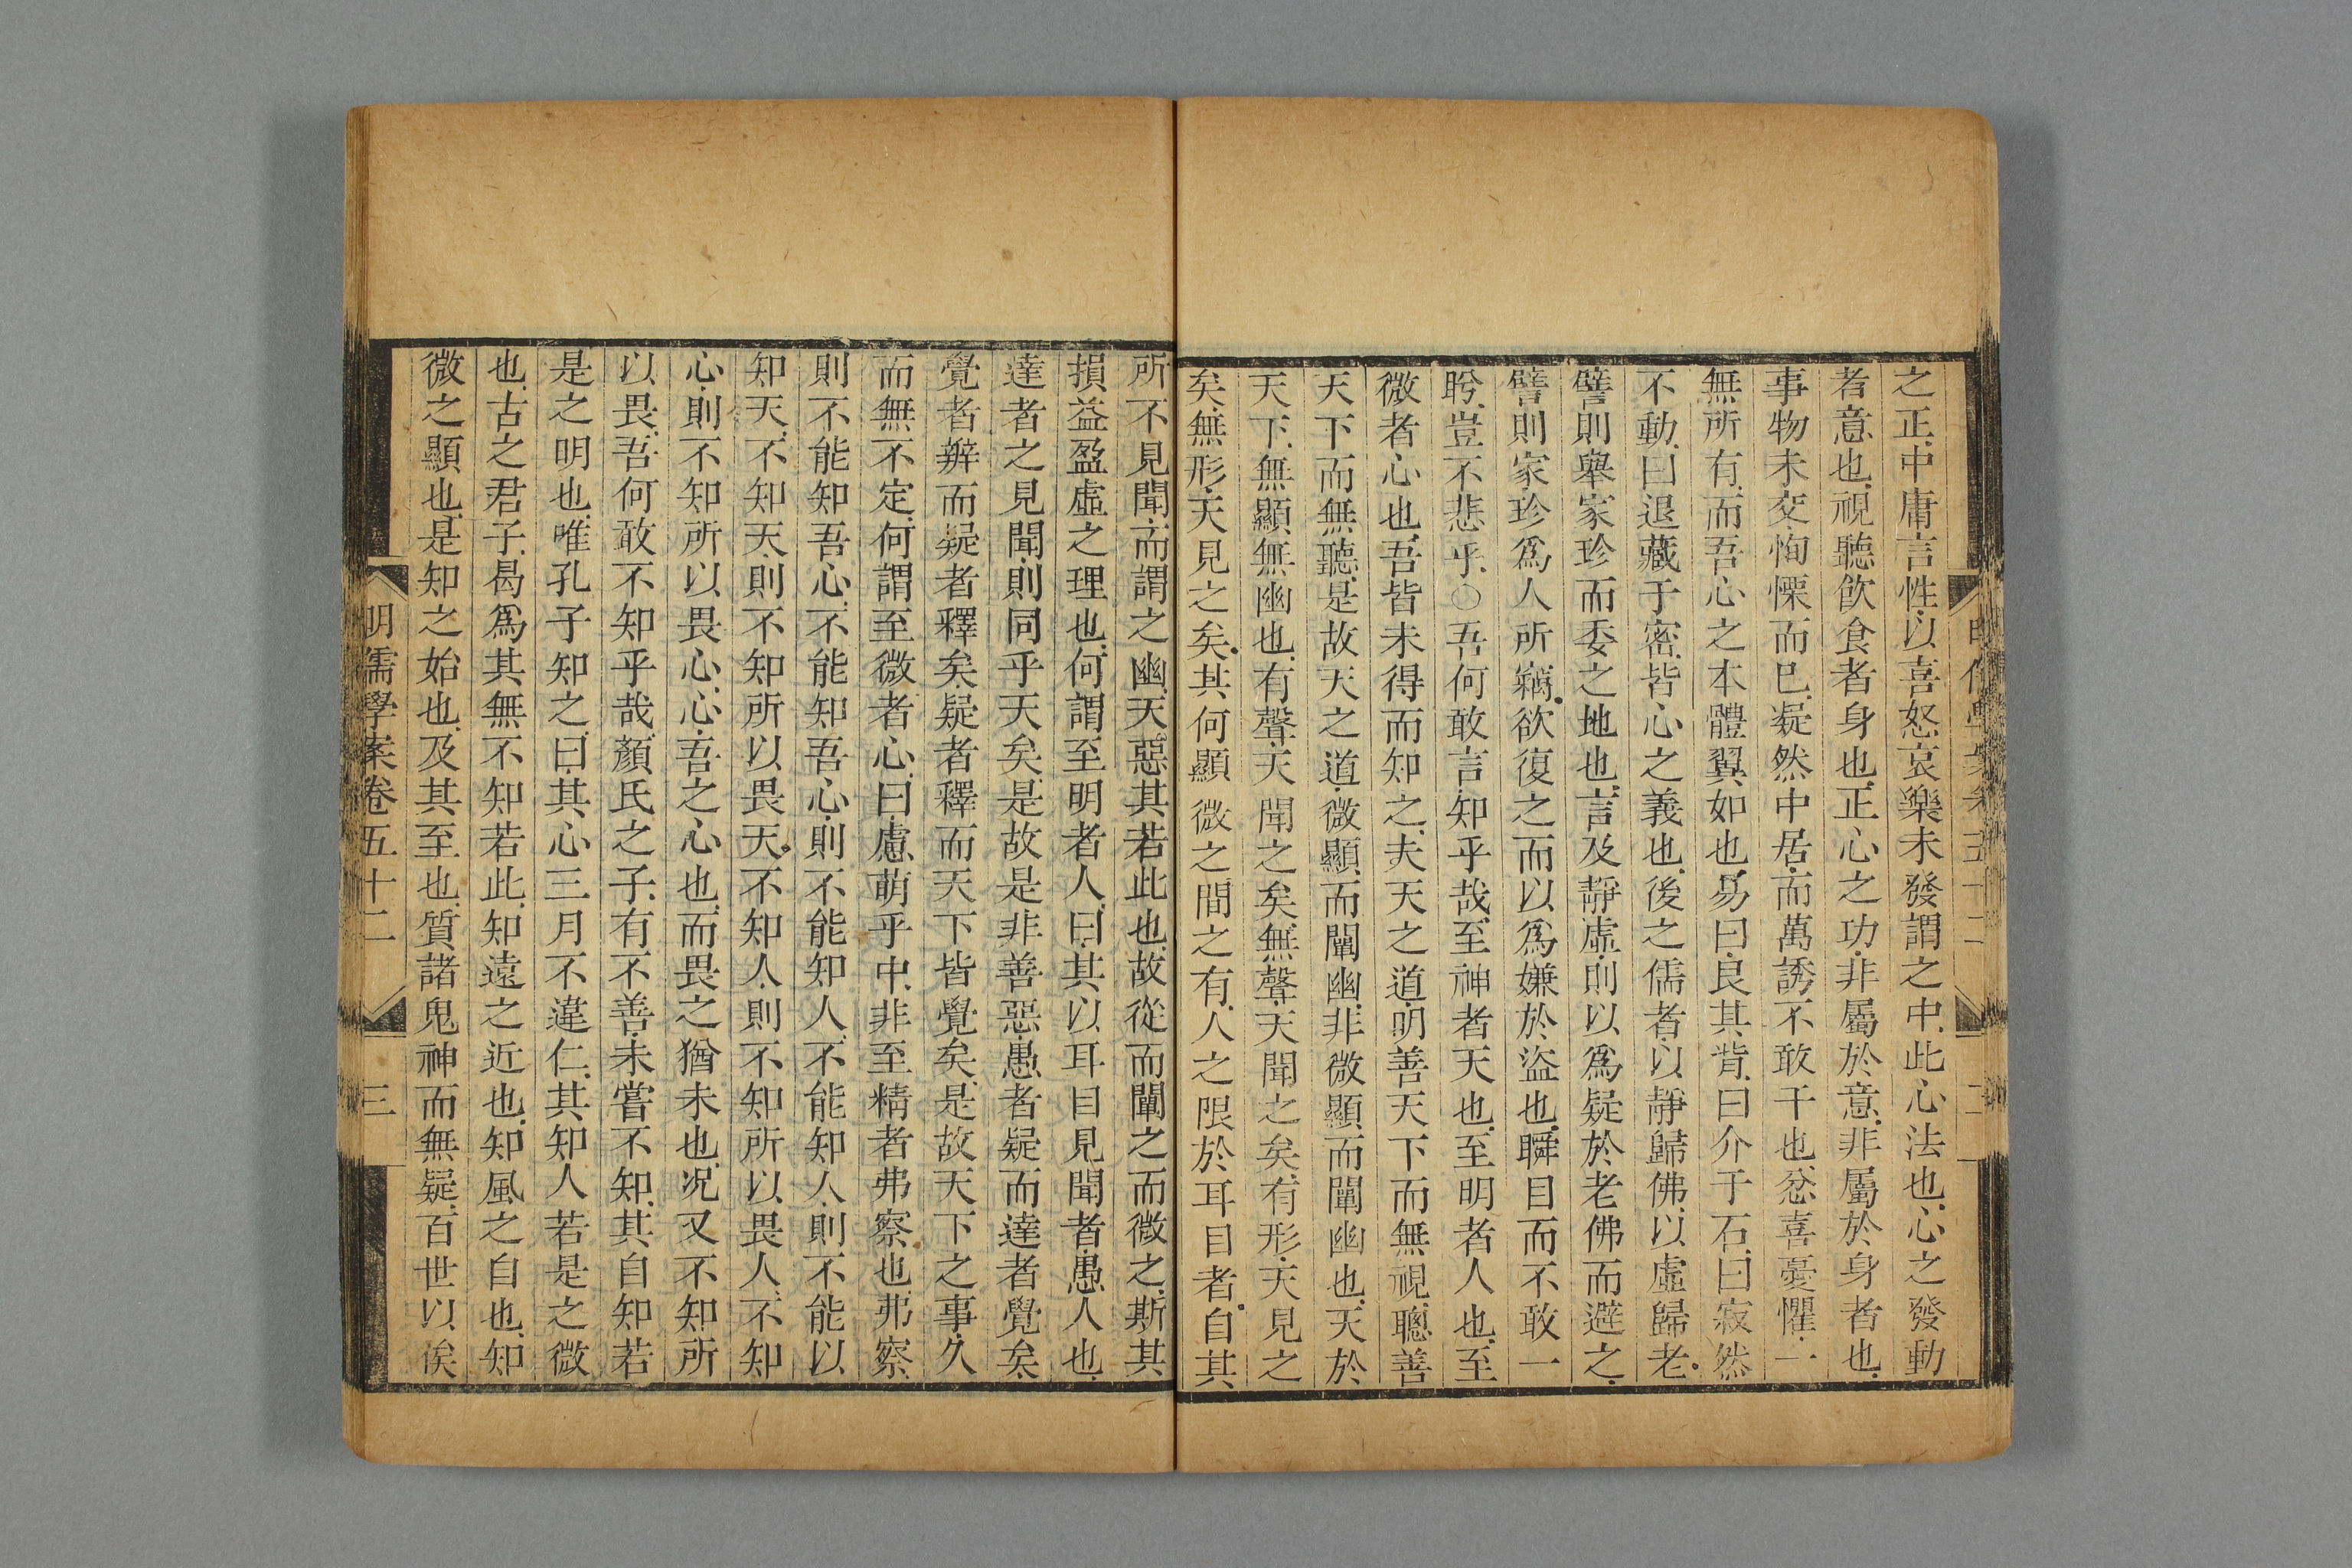 之正.中庸言性.以喜怒哀樂未發謂之中.此心法也.心之發動
者意也.視聽飲食者身也.正心之功.非屬於意.非屬於身者也.
事物未交.恂慄而已.凝然中居.而萬誘不敢干也.忿喜憂懼.一
無所有.而吾心之本體翼如也.易曰.艮其背.曰介于石.曰寂然
不動.曰退藏于密.皆心之義也.後之儒者.以靜歸佛.以虛歸老.
譬則舉家珍而委之地也.言及靜虛.則以爲疑於老佛而避之.
譬則家珍爲人所竊.欲復之而以爲嫌於盜也.瞬目而不敢一
盻.豈不悲乎.○吾何敢言知乎哉.至神者天也.至明者人也.至
微者心也.吾皆未得而知之.夫天之道.明善天下而無視.聰善
天下而無聽.是故天之道.微顯而闡幽.非微顯而闡幽也.天於
天下.無顯無幽也.有聲.天聞之矣.無聲.天聞之矣.有形.天見之
矣.無形.天見之矣.其何顯微之間之有.人之限於耳目者.自其
所不見聞.而謂之幽.天惡其若此也.故從而闡之而微之.斯其
損益盈虛之理也.何謂至明者人.曰.其以耳目見聞者.愚人也.
達者之見聞.則同乎天矣.是故是非善惡.愚者疑而達者覺矣.
覺者辨而疑者釋矣.疑者釋而天下皆覺矣.是故天下之事.久
而無不定.何謂至微者心.曰.慮萌乎中.非至精者弗察也.弗察.
則不能知吾心.不能知吾心.則不能知人.不能知人.則不能以
知天.不知天.則不知所以畏天.不知人.則不知所以畏人.不知
心.則不知所以畏心.心.吾之心也.而畏之猶未也.況又不知所
以畏.吾何敢不知乎哉.顏氏之子.有不善.未嘗不知.其自知若
是之明也.唯孔子知之.曰.其心三月不違仁.其知人若是之微
也.古之君子.曷爲其無不知若此.知遠之近也.知風之自也.知
微之顯也.是知之始也.及其至也.質諸鬼神而無疑.百世以俟
明儒學案卷五十二 三